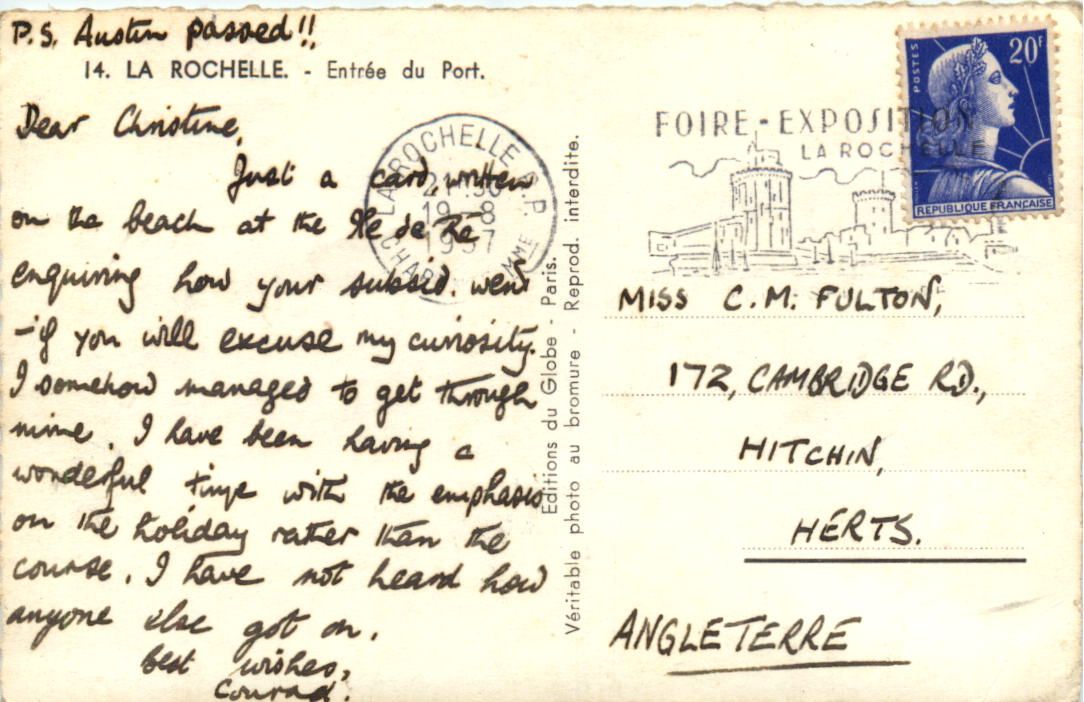 P.S. Austin passed!!
14. LA ROCHELLE. - Entrée du Port.
Dear Christine,
Just a card, written
on the beach at the Ile de Ré
enquiring how your subsid. went
- if you will excuse my curiosity.
I somehow managed to get through
mine. I have been having a
wonderful time with the emphasis
on the holiday rather than the
course. I have not heard how
anyone else got on.
best wishes,
Conrad.
LA ROCHELLE R.P.
19 - 8
1957
Editions du Globe - Paris.
Véritable photo au bromure - Reprod. interdite.
FOIRE - EXPOSITION
LA ROCHELLE
POSTES
20F
REPUBLIQUE FRANÇAISE
MISS C. M. FULTON,
172, CAMBRIDGE RD.,
HITCHIN,
HERTS.
ANGLETERRE